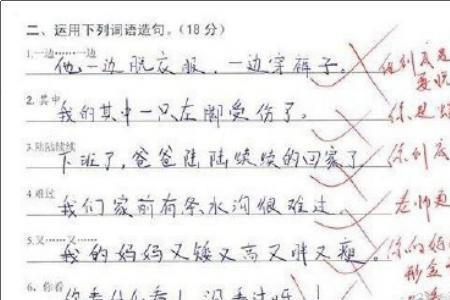 二、运用下列词语造句。(18分)
1.一边……一边
他一边脱衣服,一边穿裤子。
你到底是
要脱
2.其中
我的其中一只左脚受伤了。
你是
3.陆陆续续
下班了,爸爸陆陆续续的回家了
你到底
4.难过
我们家前有条水沟很难过。
老师更
5.又……又……
我的妈妈又矮又高又胖又瘦。
你的妈
6、你看
你看什么看!没看过